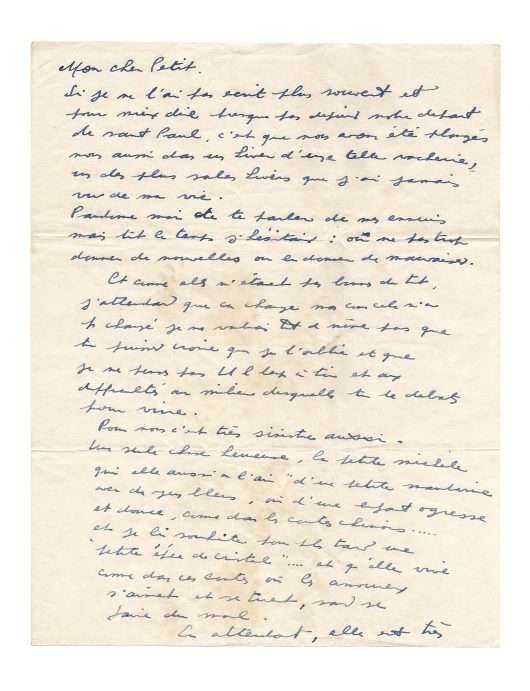 Mon cher Petit.
Si je ne t'ai pas écrit plus souvent et
pour mieux dire presque pas depuis notre départ
de saint Paul, c'est que nous avons été plongés
nous aussi dans un hiver d'une telle vacherie,
un des plus sales hivers que j'ai jamais
vu de ma vie.
Pardonne moi de te parler de mes ennuis
mais tout le temps j'hésitais : ou ne pas trop
donner de nouvelles ou en donner de mauvaises.
Et comme elles n'étaient pas bonnes du tout,
j'attendais que ça change mais comme cela n'a
pas changé je ne voulais tout de même pas que
tu puisses croire que je t'oublie et que
je ne pense pas tout le temps à toi et aux
difficultés au milieu desquelles tu te débats
pour vivre.
Pour nous c'est très sinistre aussi.
Une seule chose heureuse, la petite michèle
qui elle aussi a l'air "d'une petite
avec des yeux bleus, ou d'une enfant ogresse
et douce, comme dans les contes chinois .....
et je lui souhaite pour plus tard une
"petite épée de cristal" .... et qu'elle vive
comme dans ces contes où les amoureux
s'aiment et se tuent, sans se
faire du mal.
En attendant, elle est très